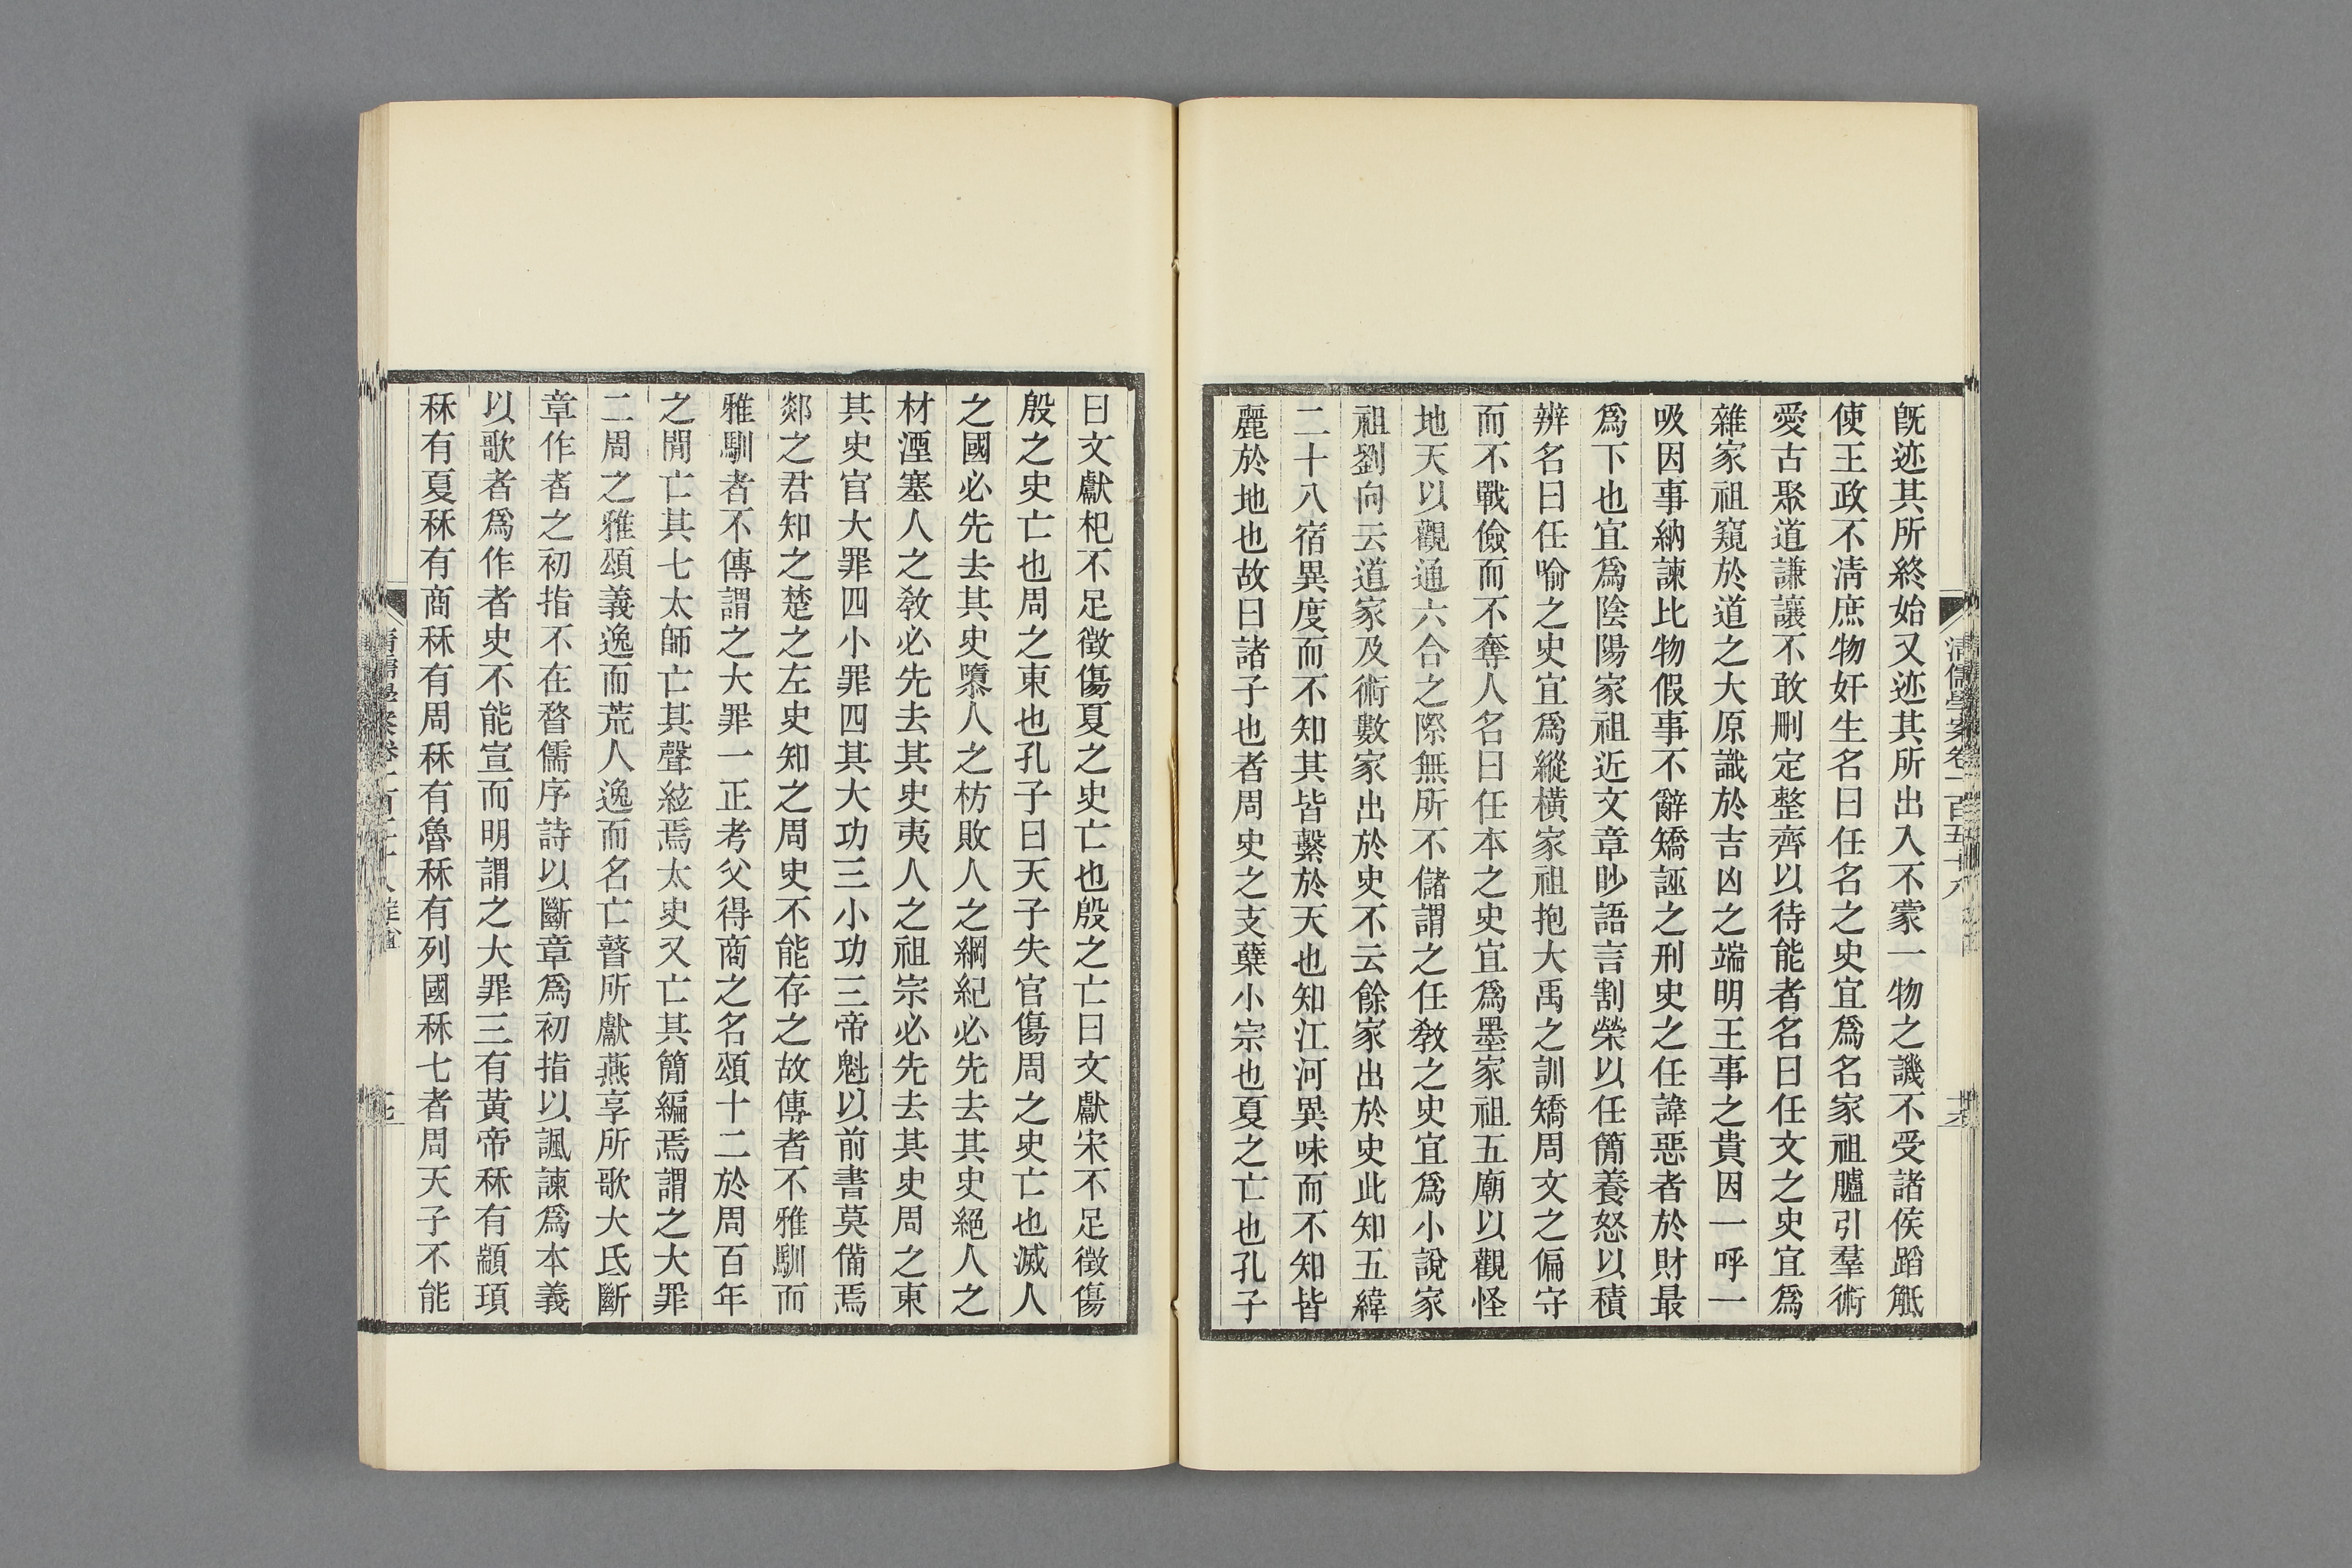 清儒學案卷一百五十八
既迹其所終始又迹其所出入不蒙一物之譏不受諸侯蹈觝
使王政不淸庶物奸生名曰任名之史宜爲名家祖臚引羣術
愛古聚道謙讓不敢刪定整齊以待能者名曰任文之史宜爲
雜家祖窺於道之大原識於吉凶之端明王事之貴因一呼一
吸因事納諫比物假事不辭矯誣之刑史之任諱惡者於財最
爲下也宜爲陰陽家祖近文章眇語言割榮以任簡養怒以積
辨名曰任喻之史宜爲縱橫家祖抱大禹之訓矯周文之偏守
而不戰儉而不奪人名曰任本之史宜爲墨家祖五廟以觀怪
地天以觀通六合之際無所不儲謂之任敎之史宜爲小說家
祖劉向云道家及術數家出於史不云餘家出於史此知五緯
二十八宿異度而不知其皆繫於天也知江河異味而不知皆
麗於地也故曰諸子也者周史之支孽小宗也夏之亡也孔子
曰文獻杞不足徵傷夏之史亡也殷之亡曰文獻宋不足徵傷
殷之史亡也周之東也孔子曰天子失官傷周之史亡也滅人
之國必先去其史隳人之枋敗人之綱紀必先去其史絕人之
材湮塞人之敎必先去其史夷人之祖宗必先去其史周之東
其史官大罪四小罪四其大功三小功三帝魁以前書莫備焉
郯之君知之楚之左史知之周史不能存之故傳者不雅馴而
雅馴者不傳謂之大罪一正考父得商之名頌十二於周百年
之閒亡其七太師亡其聲絃焉太史又亡其簡編焉謂之大罪
二周之雅頌義逸而荒人逸而名亡瞽所獻燕享所歌大氐斷
章作者之初指不在瞀儒序詩以斷章爲初指以諷諫爲本義
以歌者爲作者史不能宣而明謂之大罪三有黃帝秝有顓頊
秝有夏秝有商秝有周秝有魯秝有列國秝七者周天子不能